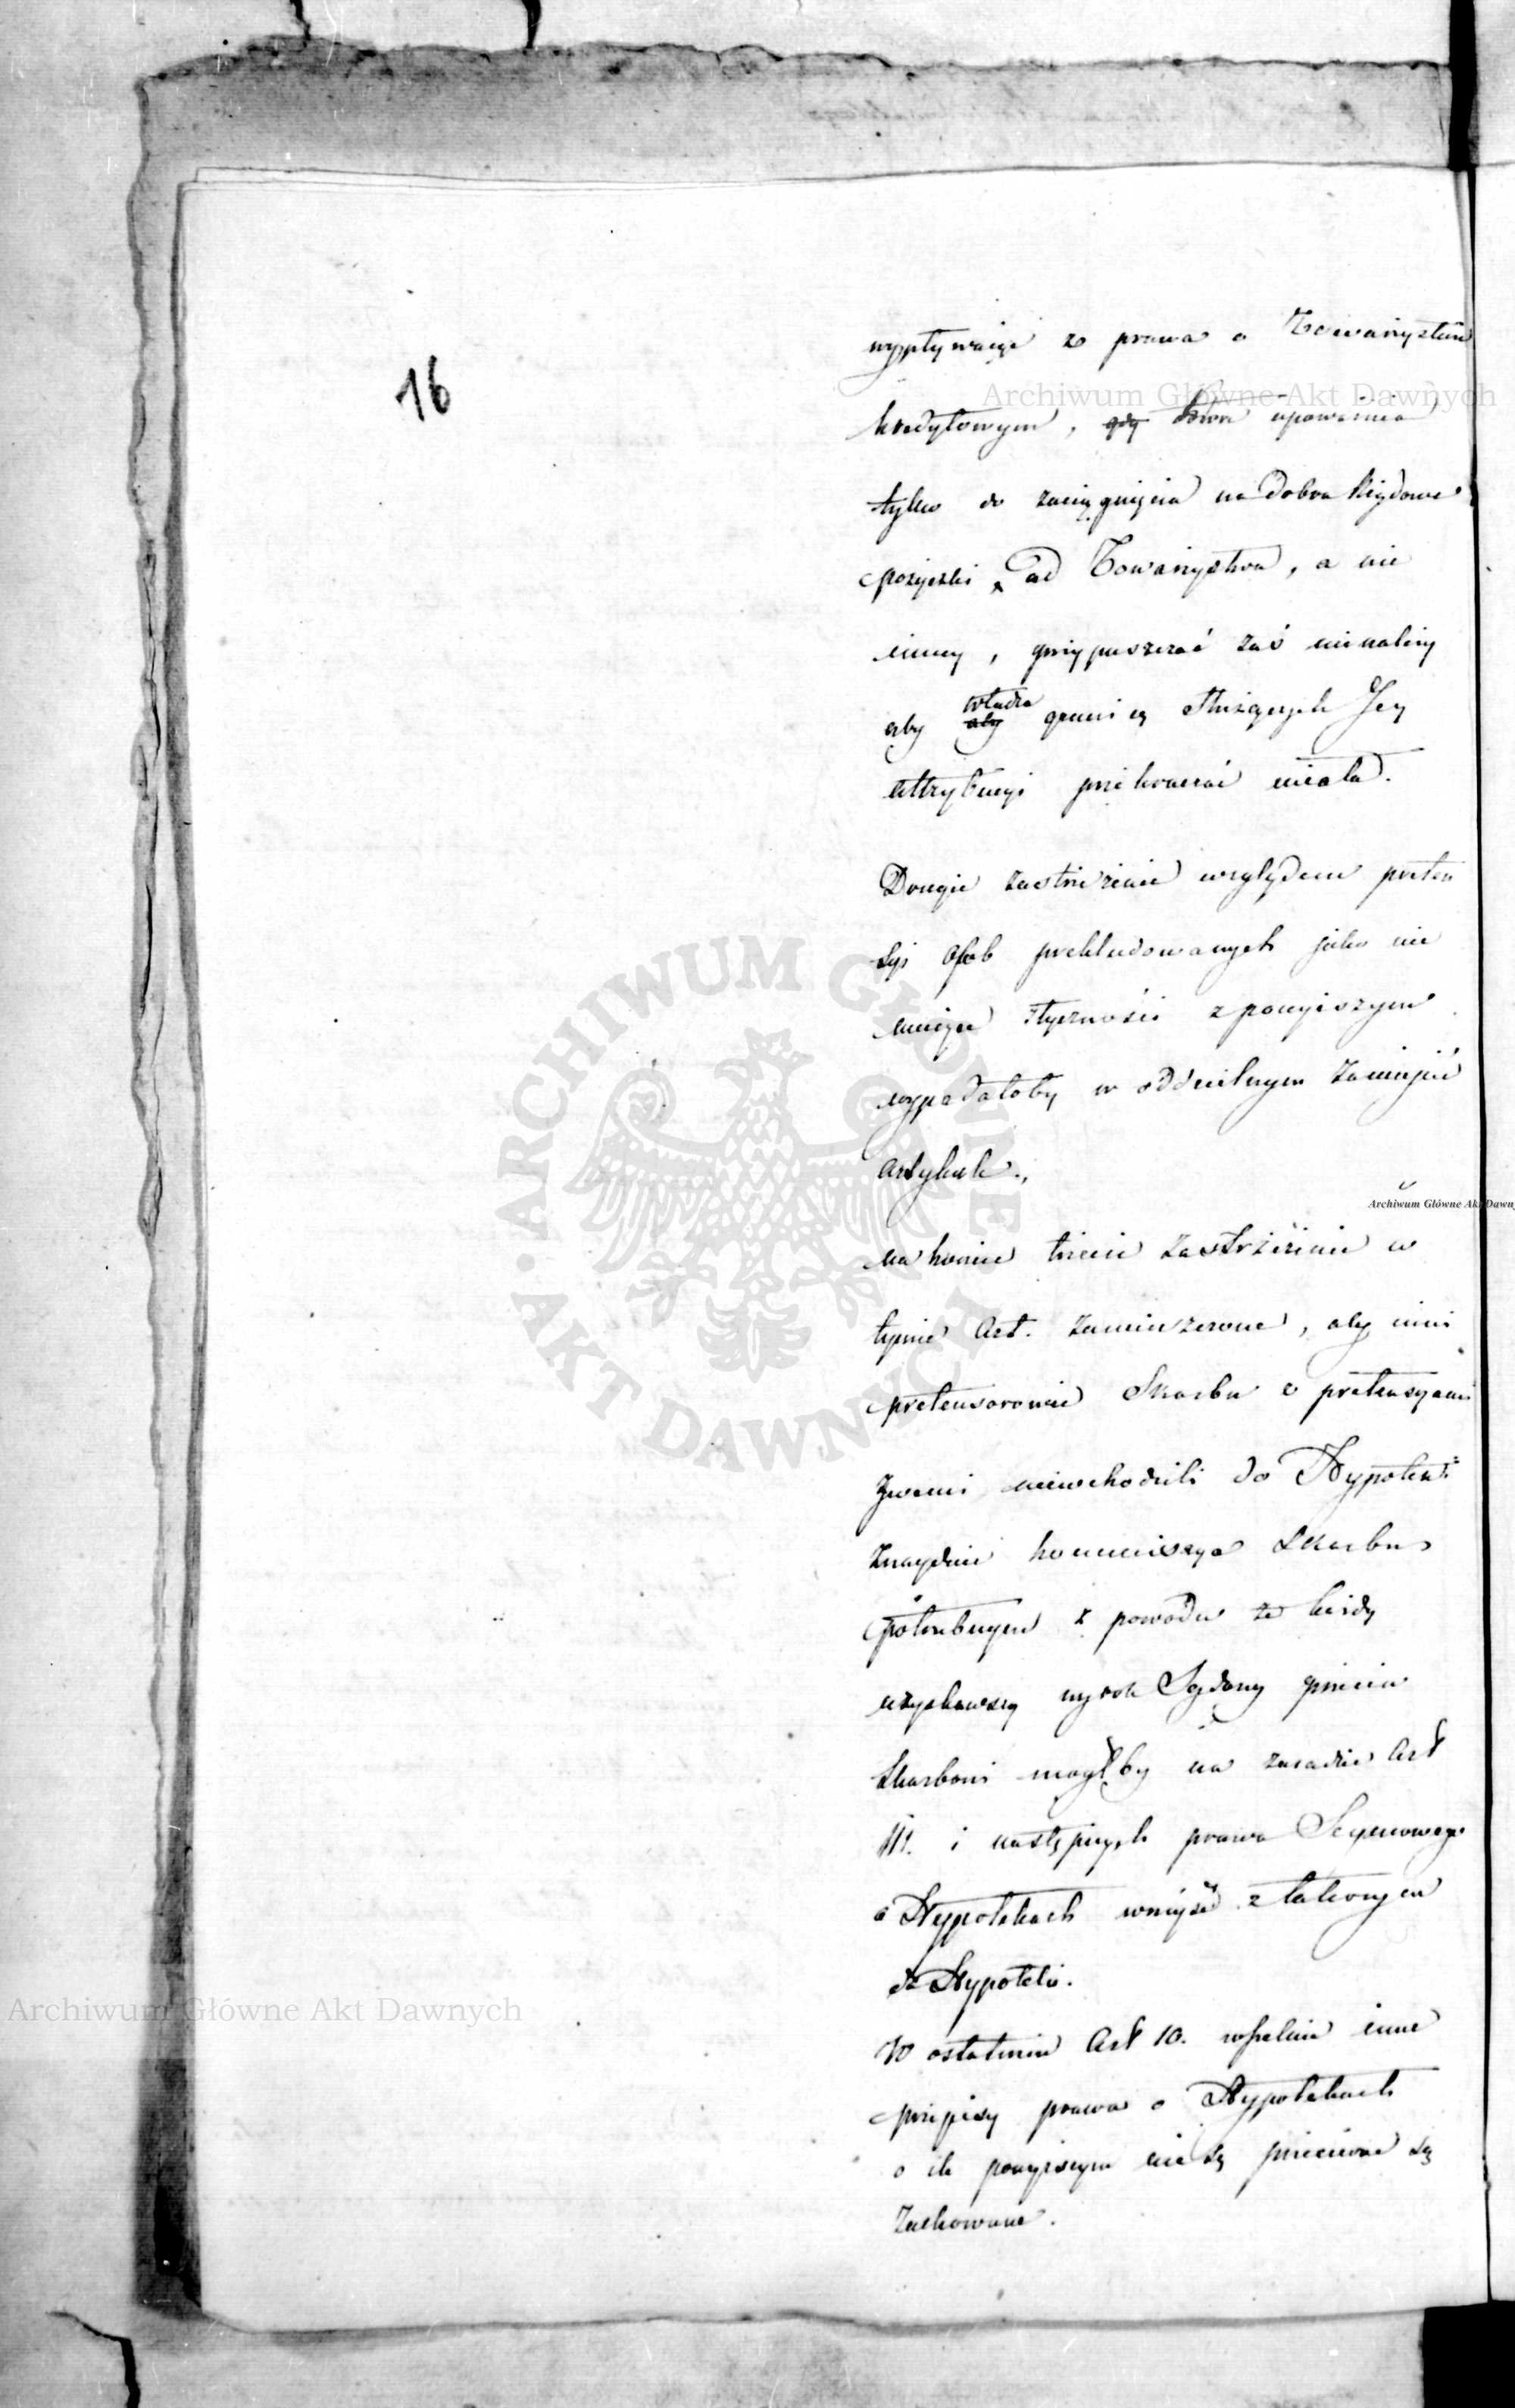 16
wypływaiące z prawa o Towarzystwie
kredytowym, gdy które upoważnia
tylko do zaciągnięcia na dobra Rządowe
pożyczki od Towarzystwa, a nie
inney, przypuszczać zaś nienależy
aby władza
aby granicę służących Jey
Attrybucyi przekraczać miała.
Drugie zastrzeżenie względem preten
syi osob prekludowanych jako nie
maiące styczności z powyższym
wypadałoby w oddzielnym zamieścić
Artykule.
na koniec trzecie zastrzeżenie w
tymże Art. zamieszczone, aby inni
pretensorowie Skarbu z pretensyami
swemi niewchodzili do Hypoteki
znayduie kommissya Skarbu
potrzebnym z powodu że każdy
uzyskawszy wyrok Sądowy przeciw
Skarbowi mogłby na zasadzie Art
111. i następnych prawa Seymowego
o Hypotekach wniyść z takowym
do Hypoteki.
W ostatnim Art 10. wszelkie inne
przepisy prawa o Hypotekach
o ile powyższym nie są przeciwne są
zachowane.
Archiwum Główne Akt Dawnych
Archiwum Główne Akt Dawn
ARCHIWUM GŁÓWNE · AKT DAWNYCH ·
Archiwum Główne Akt Dawnych